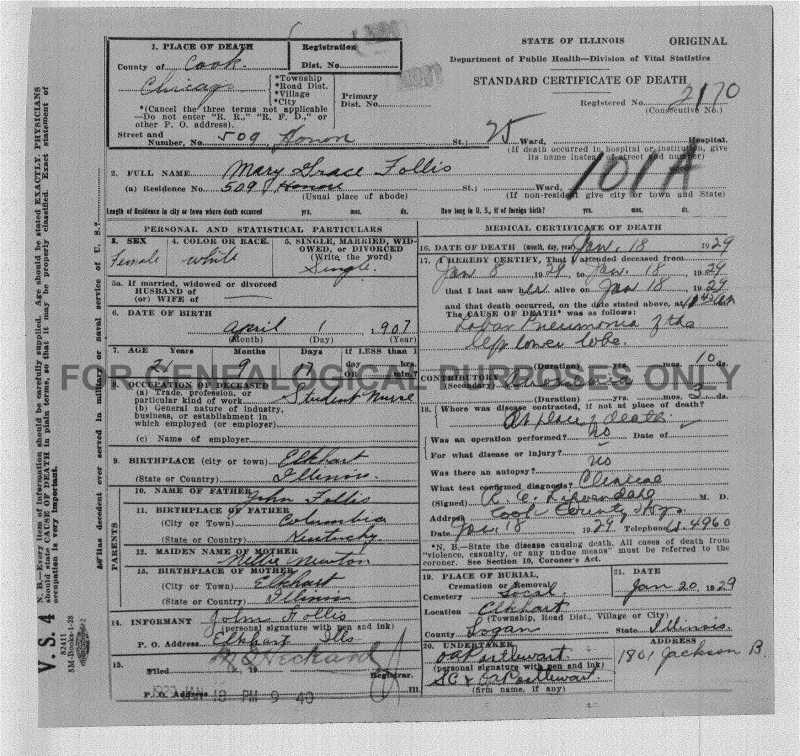 STATE OF ILLINOIS ORIGINAL
Department of Public Health—Division of Vital Statistics
STANDARD CERTIFICATE OF DEATH
Registered No. 2170
(Consecutive No.)
1. PLACE OF DEATH
County of Cook
Registration
Dist. No.
Chicago
*Township
*Road Dist.
*Village
*City
Primary
Dist. No.
*(Cancel the three terms not applicable
—Do not enter "R. R.," "R. F. D.," or
other P. O. address).
Street and
Number, No. 509 Honore St.; 25 Ward, Hospital.
(If death occurred in hospital or institution, give
its name instead of street and number)
101A
2. FULL NAME Mary Grace Follis
(a) Residence No. 509 Honore St.; Ward,
(Usual place of abode) (If non-resident give city or town and State)
Length of Residence in city or town where death occurred yrs. mos. ds. How long in U. S., if of foreign birth? yrs. mos. ds.
PERSONAL AND STATISTICAL PARTICULARS
3. SEX
Female
4. COLOR OR RACE.
White
5. SINGLE, MARRIED, WIDOWED, OR DIVORCED
(Write, the word)
Single.
5a. If married, widowed or divorced
HUSBAND of
(or) WIFE of
6. DATE OF BIRTH
April 1 1907
(Month) (Day) (Year)
7. AGE Years Months Days If LESS than 1
day hrs.
or min.?
21 9 17
8. OCCUPATION OF DECEASED
(a) Trade, profession, or
particular kind of work Student Nurse
(b) General nature of industry,
business, or establishment in
which employed (or employer)
(c) Name of employer
9. BIRTHPLACE (city or town) Elkhart
(State or Country) Illinois.
PARENTS
10. NAME OF FATHER John Follis
11. BIRTHPLACE OF FATHER
(City or Town) Columbia
(State or Country) Kentucky
12. MAIDEN NAME OF MOTHER Nellie Newton
13. BIRTHPLACE OF MOTHER
(City or Town) Elkhart
(State or Country) Illinois
14. INFORMANT John Follis
(personal signature with pen and ink)
P. O. Address Elkhart Ills
15.
Filed
Registrar.
18 PM 9 40
P. O. Address Ill.
MEDICAL CERTIFICATE OF DEATH
16. DATE OF DEATH (month, day, year) Jan. 18 1929
17. I HEREBY CERTIFY, That I attended deceased from
Jan 8 1928 to Jan. 18, 1929
that I last saw her alive on Jan 18, 1929
and that death occurred, on the date stated above, at
The CAUSE OF DEATH* was as follows:
Lobar Pneumonia of the
left lower lobe.
(Duration) yrs. mos. 10 ds.
CONTRIBUTORY
(Secondary)
(Duration) yrs. mos. ds.
18. Where was disease contracted, if not at place of death?
At place of death
Was an operation performed? no Date of
For what disease or injury?
Was there an autopsy? no
What test confirmed diagnosis? Clinical
(Signed) M. D.
Address Cook County Hosp.
Date Jan. 18 1929. Telephone 4960
*N. B.—State the disease causing death. All cases of death from
"violence, casualty, or any undue means" must be referred to the
coroner. See Section 10, Coroner's Act.
19. PLACE OF BURIAL
Cremation or Removal
Cemetery Local
Location Elkhart
(Township, Road Dist., Village or City)
County Logan State Illinois.
21. DATE
Jan 20, 1929
20. UNDERTAKER
(personal signature with pen and ink)
(firm name, if any)
ADDRESS
1801 Jackson B.
FOR GENEALOGICAL PURPOSES ONLY
N. B.—Every item of information should be carefully supplied. Age should be stated EXACTLY. PHYSICIANS
should state CAUSE OF DEATH in plain terms, so that it may be properly classified. Exact statement of
occupation is very important.
Has decedent ever served in military or naval service of U. S.?
V. S. 4